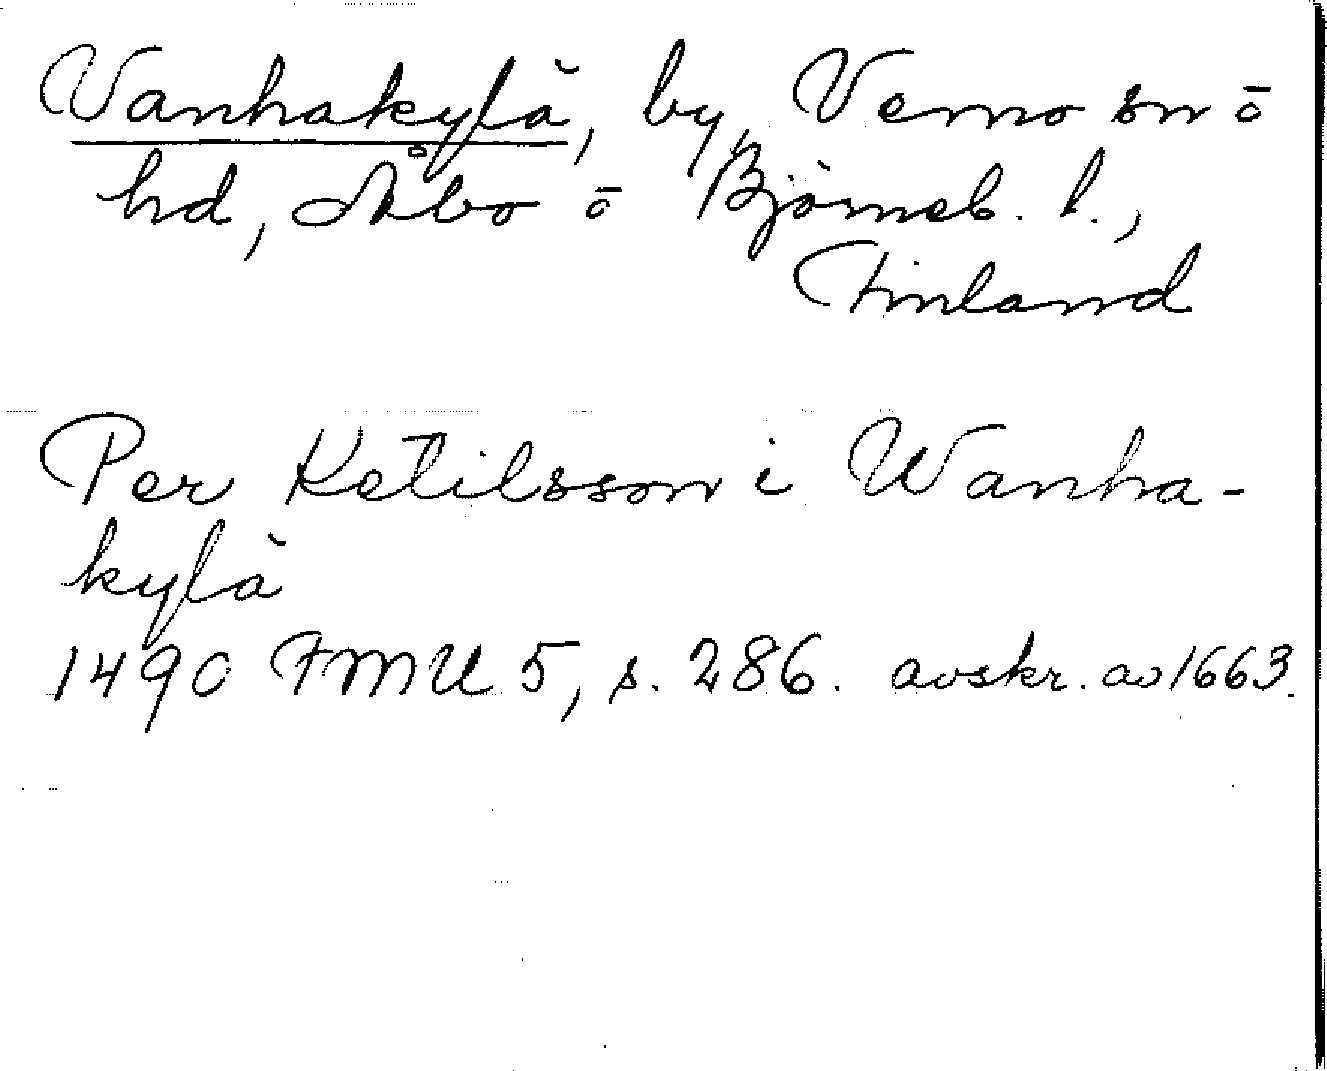 Vanhakylä, by, Vemo sn o
hd, Åbo o Björneb. l.,
Finland
Per Ketilsson i Wanha-
kylä
1490 FMU 5, s. 286. avskr. av 1663.